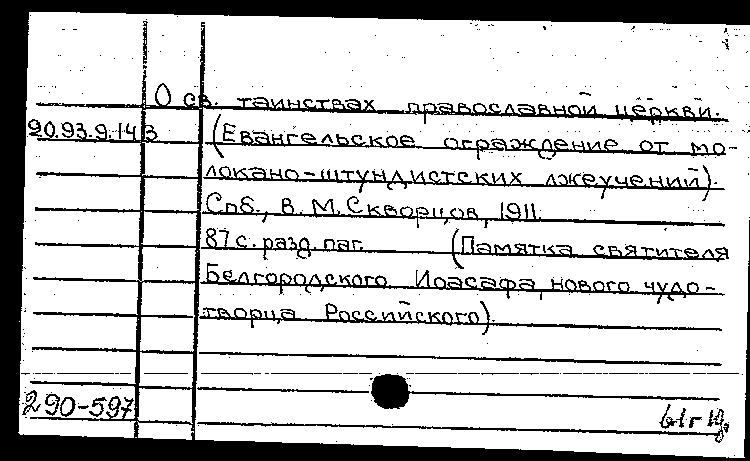 О св. таинствах православной церкви.
90.93.9.143 (Евангельское ограждение от мо-
локано-штундистских лжеучений).
Спб., В. М. Скворцов, 1911.
87 с. разд. паг. (Памятка святителя
Белгородского Иоасафа, нового чудо-
творца Российского).
290-597